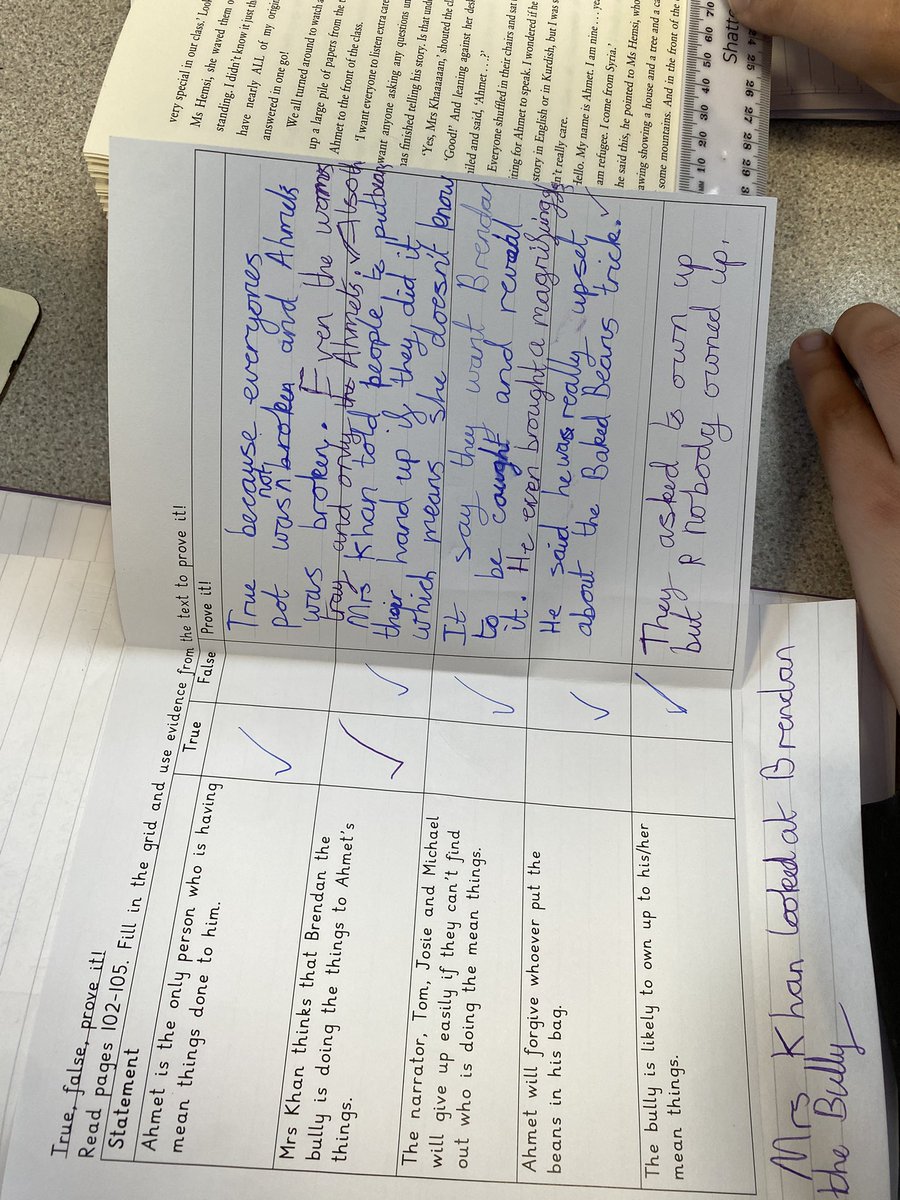 very special in our class.' Look
Ms Hemsi, she waved them
standing. I didn't know if just th
have nearly ALL of my origi
answered in one go!
We all turned around to watch
up a large pile of papers from the
Ahmet to the front of the class.
'I want everyone to listen extra care
want anyone asking any questions un
has finished telling his story. Is that unde
'Yes, Mrs Khaaaaaan,' shouted the cl
'Good!' And leaning against her des
iled and said, 'Ahmet . . .?'
Everyone shuffled in their chairs and sat
iting for Ahmet to speak. I wondered if he
story in English or in Kurdish, but I was s
n't really care.
Hello. My name is Ahmet. I am nine . . . ye
am refugee. I come from Syria.'
he said this, he pointed to Ms Hemsi, who
awing showing a house and a tree and a ca
some mountains. And in the front of the
Shatt
mm 10 20 30 40 50 60 70
24 25 26 27 28 29
True, false, prove it!
Read pages 102-105. Fill in the grid and use evidence from the text to prove it!
Statement True False Prove it!
Ahmet is the only person who is having
mean things done to him.
True because everyones
pot was not broken and Ahmets
was broken. Even the woms
tray and only the Ahmets. Also the
Mrs Khan thinks that Brendan the
bully is doing the things to Ahmet's
things.
Mrs Khan told people to put
their hand up if they did it
which means she doesn't know
The narrator, Tom, Josie and Michael
will give up easily if they can't find
out who is doing the mean things.
It say they want Brendan
to be caught and reveal
it. He even brought a magnifiying
Ahmet will forgive whoever put the
beans in his bag.
He said he was really upset
about the Baked Beans trick.
The bully is likely to own up to his/her
mean things.
They asked to own up
but nobody owned up.
Mrs Khan looked at Brendan
the Bully